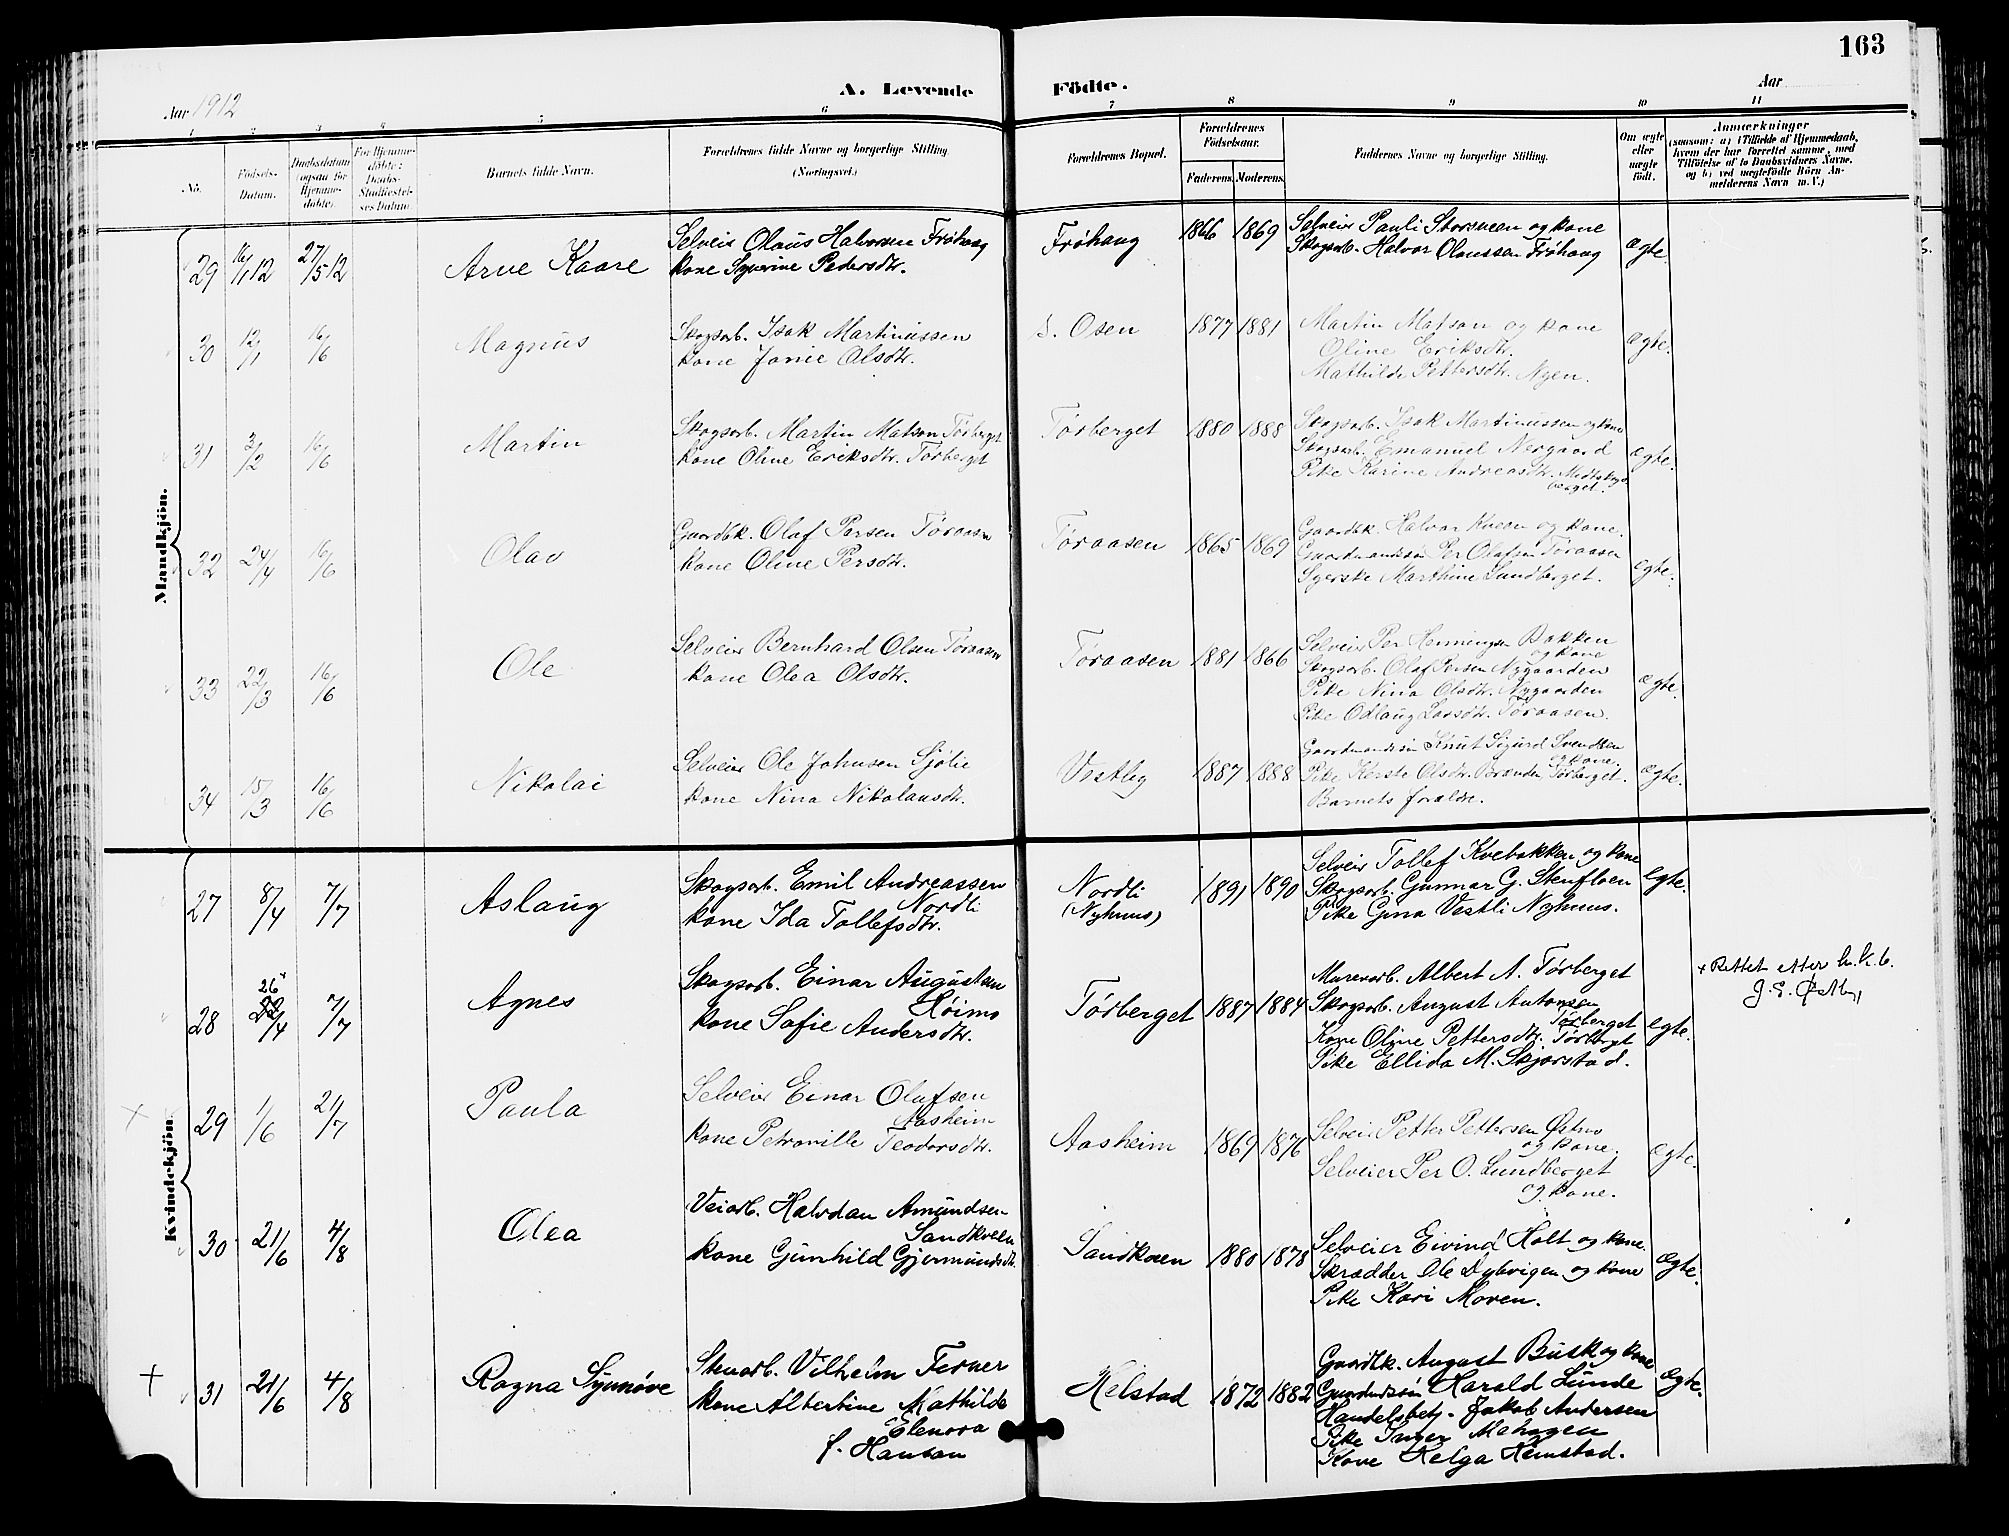 163
A. Levende Födte.
Aar 1912
Aar
1 2 3 4 5 6 7 8 9 10 11
No.
Födsels-Datum.
Daabsdatum (ogsaa for Hjemme-döbte).
For Hjemme-döbte: Daabs-Stadfæstel-ses Datum.
Barnets fulde Navn.
Forældrenes fulde Navne og borgerlige Stilling (Næringsvei.)
Forældrenes Bopæl.
Forældrenes Födselsaar.
Faderens. Moderens.
Faddernes Navne og borgerlige Stilling.
Om ægte eller uægte födt.
Anmærkninger
(saasom: a) i Tilfælde af Hjemmedaab, hvem der har forrettet samme, med Tilföielse af to Daabsvidners Navne, og b) ved uægtefödte Börn An-melderens Navn m. V.)
Mandkjön.
29 16/1 12 27/5 12 Arve Kaare
Selveier Olaus Halvorsen Frøhaug
kone Syverine Pedersdtr.
Frøhaug 1866 1869
Selveier Pauli Storsveen og kone
Skogsarb. Halvor Olaussen Frøhaug
ægte
30 12/1 16/6 Magnus
Skogsarb. Isak Martinussen
kone Jonie Olsdtr.
S. Osen 1877 1881
Martin Matson og kone
Oline Eriksdtr.
Mathilde Pettersdtr. Nyen.
ægte.
31 3/2 16/6 Martin
Skogsarb. Martin Matson Tørberget
kone Oline Eriksdtr. Tørberget
Tørberget 1880 1888
Skogsarb. Isak Martinussen og kone
Skogsarb. Emanuel Nergaard
Pike Karine Andreasdtr. Midtskog-
berget.
ægte.
32 24/4 16/6 Olav
Gaardbk. Olaf Persen Tøraasen
kone Oline Persdtr.
Tøraasen 1865 1869
Gaardbk. Halvor Kveen og kone.
Gaardmandssøn Per Olafsen Tøraasen
Syerske Marthine Lundberget.
ægte.
33 22/3 16/6 Ole
Selveier Bernhard Olsen Tøraasen
kone Olea Olsdtr.
Tøraasen 1881 1866
Selveier Per Henningsen Bakken
og kone
Skogsarb. Olaf Persen Nygaarden
Pike Nina Olsdtr. Nygaarden
Pike Odlaug Larsdtr. Tøraasen.
ægte.
34 15/3 16/6 Nikolai
Selveier Ole Johnsen Sjølie
kone Nina Nikolausdtr.
Vestby 1887 1888
Gaardmandssøn Knut Sigurd Svendsen
og kone.
Pike Kerste Olsdtr. Brænden Tørberget.
Barnets foreldre.
ægte.
Kvindekjön.
27 8/4 7/7 Aslaug
Skogsarb. Emil Andreassen
Nordli
kone Ida Tollefsdtr.
Nordli
(Nyhuus)
1891 1890
Selveier Tollef Kvebakken og kone
Skogsarb. Gunnar G. Stenfloen
Pike Gina Vestli Nyhuus.
ægte.
28 26/4 7/7 Agnes
Skogsarb. Einar Augustsen
Høimo
kone Sofie Andersdtr.
Tørberget 1887 1884
Murerarb. Albert A. Tørberget
Skogsarb. August Antonsen
Tørberget
Kone Oline Pettersdtr. Tørberget
Pike Ellida M. Skjærstad.
ægte.
+ Rettet etter h.k.b.
J. E. Østby
+ 29 1/6 21/7 Paula
Selveier Einar Olafsen
Aasheim
kone Petronille Teodorsdtr.
Aasheim 1869 1876
Selveier Petter Pettersen Østmo
og kone.
Selveier Per O. Lundberget
og kone.
ægte.
30 21/6 4/8 Olea
Veiarb. Halvdan Amundsen
Sandkveen
kone Gunhild Gjermundsdtr.
Sandkveen 1880 1878
Selveier Eivind Holt og kone.
Skrædder Ole Dybvigen og kone
Pike Kari Moren.
ægte.
+ 31 21/6 4/8 Ragna Synnøve
Stenarb. Vilhelm Ferner
kone Albertine Mathilde
Elenora
f. Hansen
Kelstad 1872 1882
Gaardbk. August Busk og kone
Gaardmdssøn Harald Lunde
Handelsbetj. Jakob Andersen
Pike Inger Mehagen
Kone Helga Hemstad.
ægte.